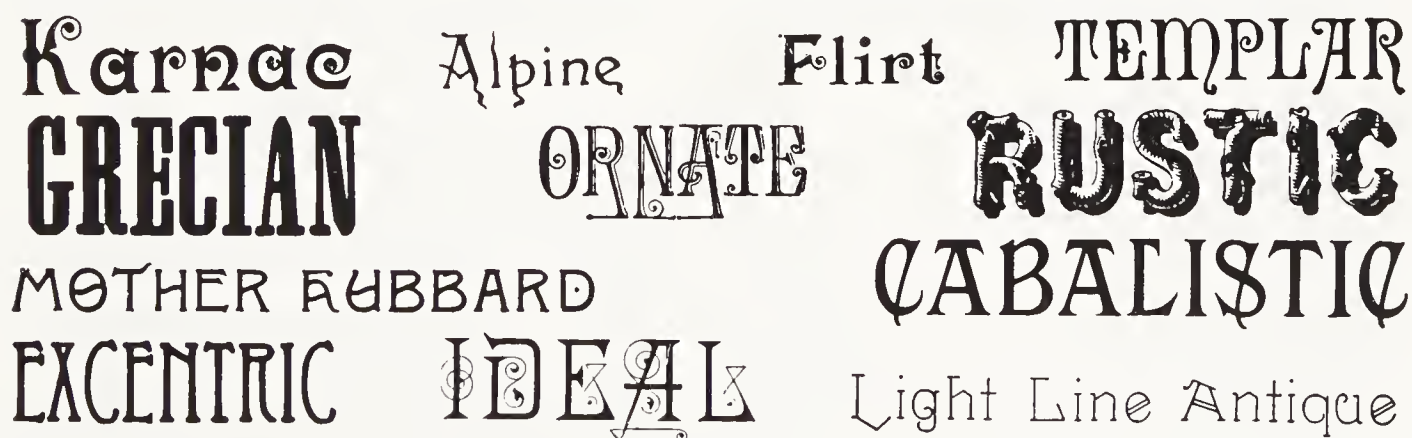 Karnac Alpine Flirt TEMPLAR
GRECIAN ORNATE RUSTIC
MOTHER HUBBARD CABALISTIC
EXCENTRIC IDEAL Light Line Antique